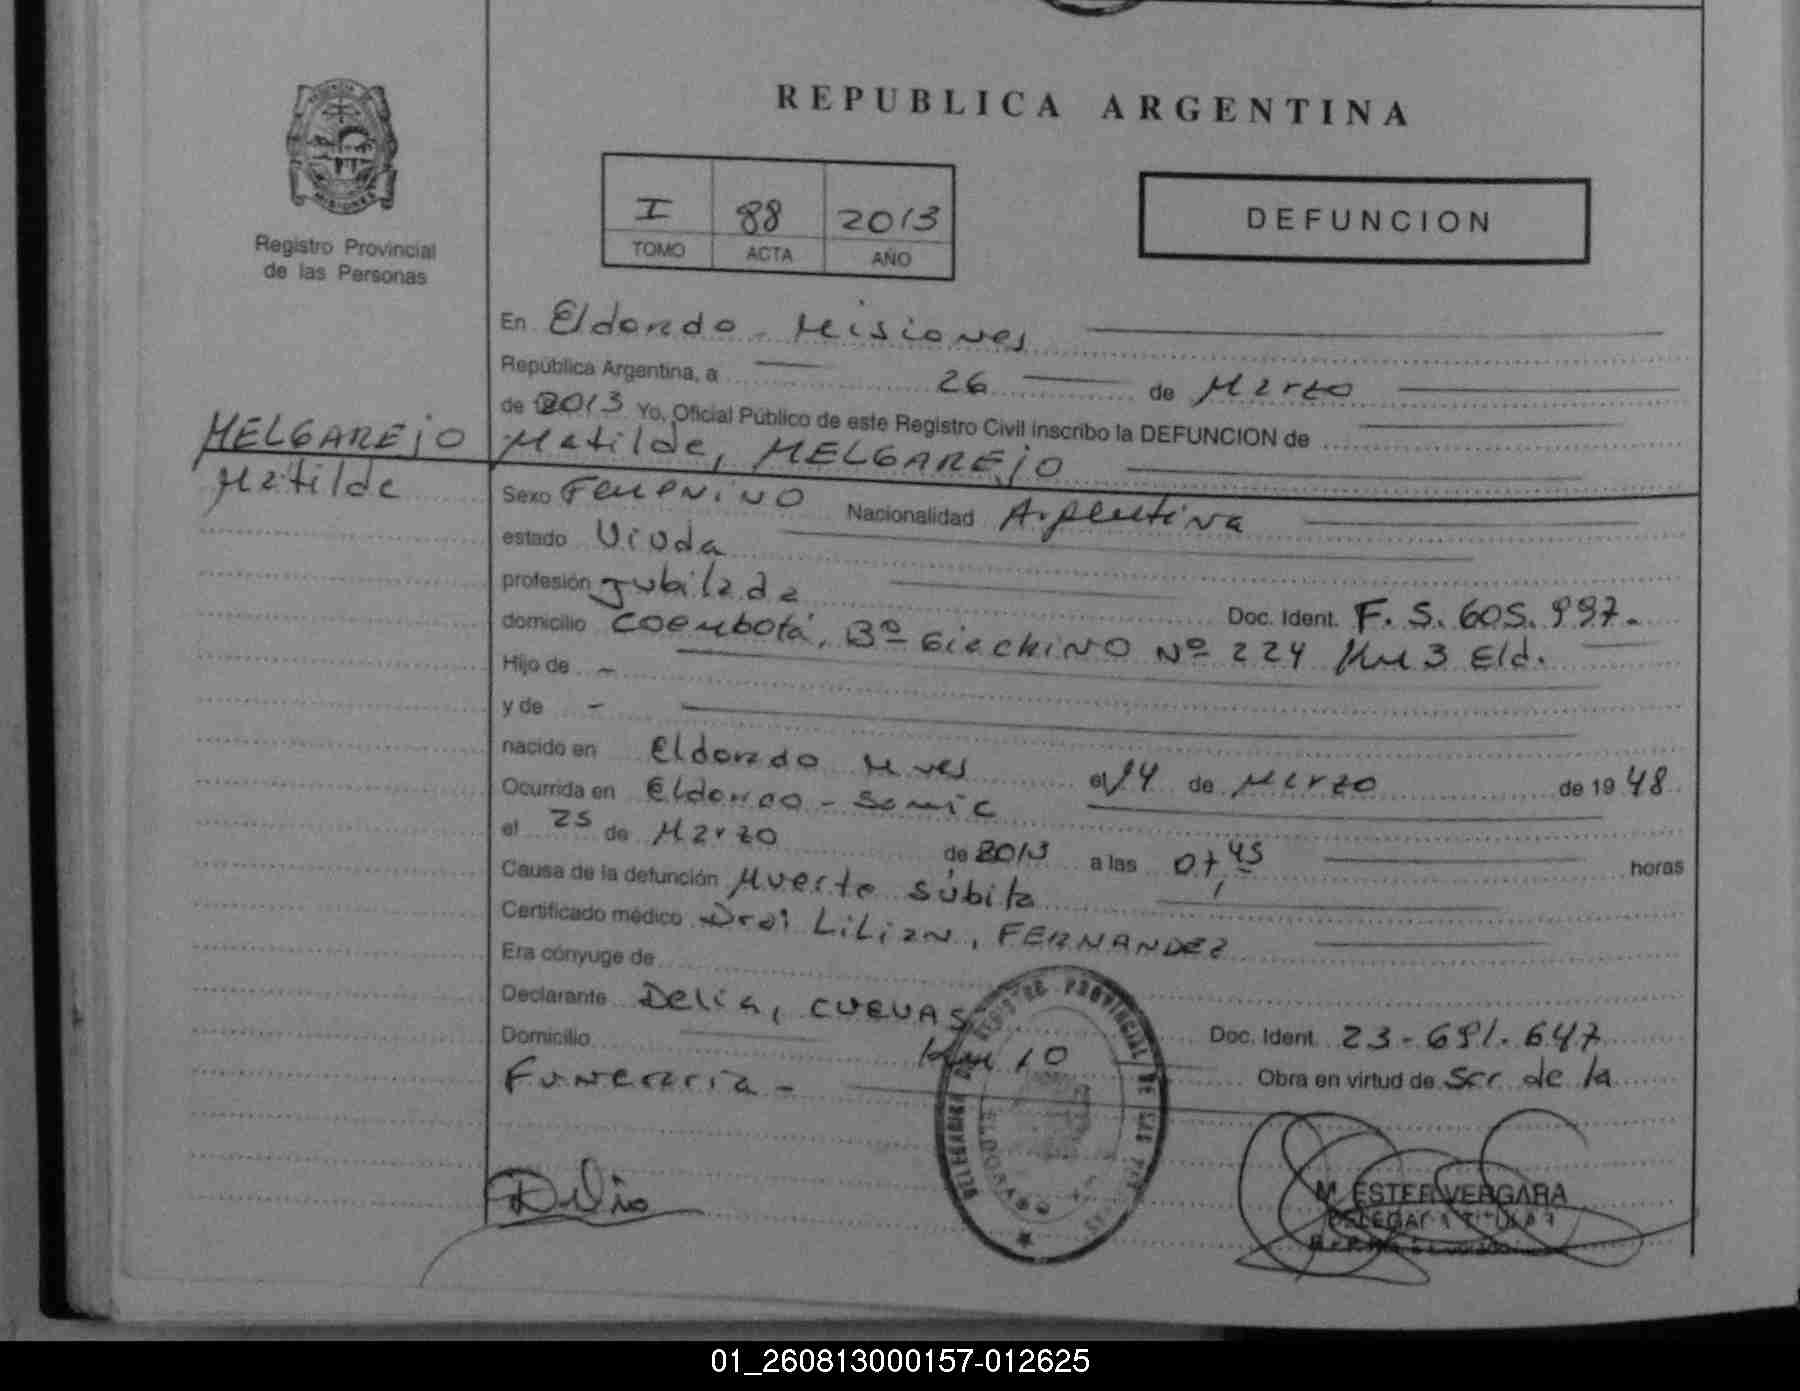 REPUBLICA ARGENTINA
MISIONES
Registro Provincial
de las Personas
I 88 2013
TOMO ACTA AÑO
DEFUNCION
En Eldorado - Misiones
República Argentina, a 26 de Marzo
de 2013 Yo, Oficial Público de este Registro Civil inscribo la DEFUNCION de
MELGAREJO
Matilde
Matilde, MELGAREJO
Sexo Femenino Nacionalidad Argentina
estado Viuda
profesión Jubilada Doc. Ident. F. 5. 605. 997.
domicilio Coembotá, Bº Giachino Nº 224 Km 3 Eld.
Hijo de -
y de -
nacido en Eldorado Mnes el 14 de Marzo de 19 48
Ocurrida en Eldorado - Samic
el 25 de Marzo de 2013 a las 07,45 horas
Causa de la defunción Muerte súbita
Certificado médico Dra: Lilian, FERNANDEZ
Era cónyuge de
Declarante Delia, CUEVAS Doc. Ident. 23-691.647
Domicilio Km 10 Obra en virtud de Ser de la
Funeraria -
REGISTRO PROVINCIAL DE LAS
ELDORADO
Delia
M. ESTER VERGARA
DELEGADA TITULAR
01_260813000157-012625